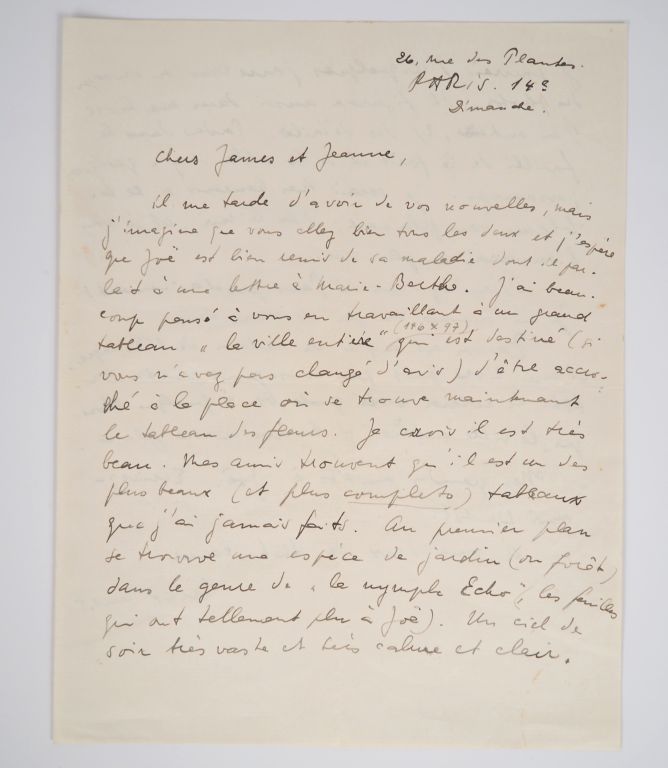 26, rue des Plantes.
PARIS. 14e
Dimanche.
Chers James et Jeanne,
Il me tarde d'avoir de vos nouvelles, mais
j'imagine que vous allez bien tous les deux et j'espère
que Joë est bien remis de sa maladie dont il par-
lait à une lettre à Marie-Berthe. J'ai beau-
coup pensé à vous en travaillant à un grand
(146 x 97)
tableau "la ville entière" qui est destiné (si
vous n'avez pas changé d'avis) d'être accro-
ché à la place où se trouve maintenant
le tableau des fleurs. Je crois il est très
beau. Mes amis trouvent qu'il est un des
plus beaux (et plus complets) tableaux
que j'ai jamais faits. Au premier plan
se trouve une espèce de jardin (ou forêt)
dans le genre de "la nymphe Echo", les feuilles
qui ont tellement plu à Joë). Un ciel de
soir très vaste et très calme et clair.